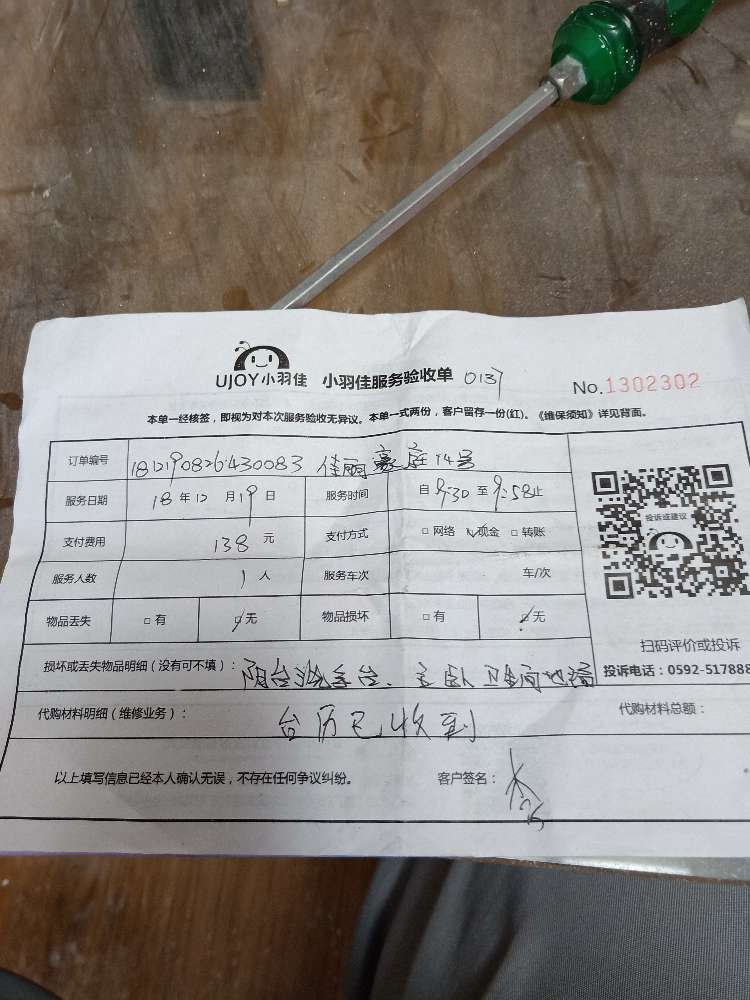 UJOY小羽佳 小羽佳服务验收单 0137 No.1302302
本单一经核签，即视为对本次服务验收无异议。本单一式两份，客户留存一份(红)。《维保须知》详见背面。
订单编号 1812190826430083 佳丽豪庭14号
服务日期 18年12月19日 服务时间 自9:30至9:58止
投诉或建议
支付费用 138元 支付方式 □网络 ☑现金 □转账
服务人数 1人 服务车次 车/次
物品丢失 □有 ☑无 物品损坏 □有 ☑无
扫码评价或投诉
损坏或丢失物品明细（没有可不填）： 阳台洗 台、主卧卫生间地漏
投诉电话：0592-517888
代购材料明细（维修业务）： 台历已收到 代购材料总额：
以上填写信息已经本人确认无误，不存在任何争议纠纷。 客户签名：